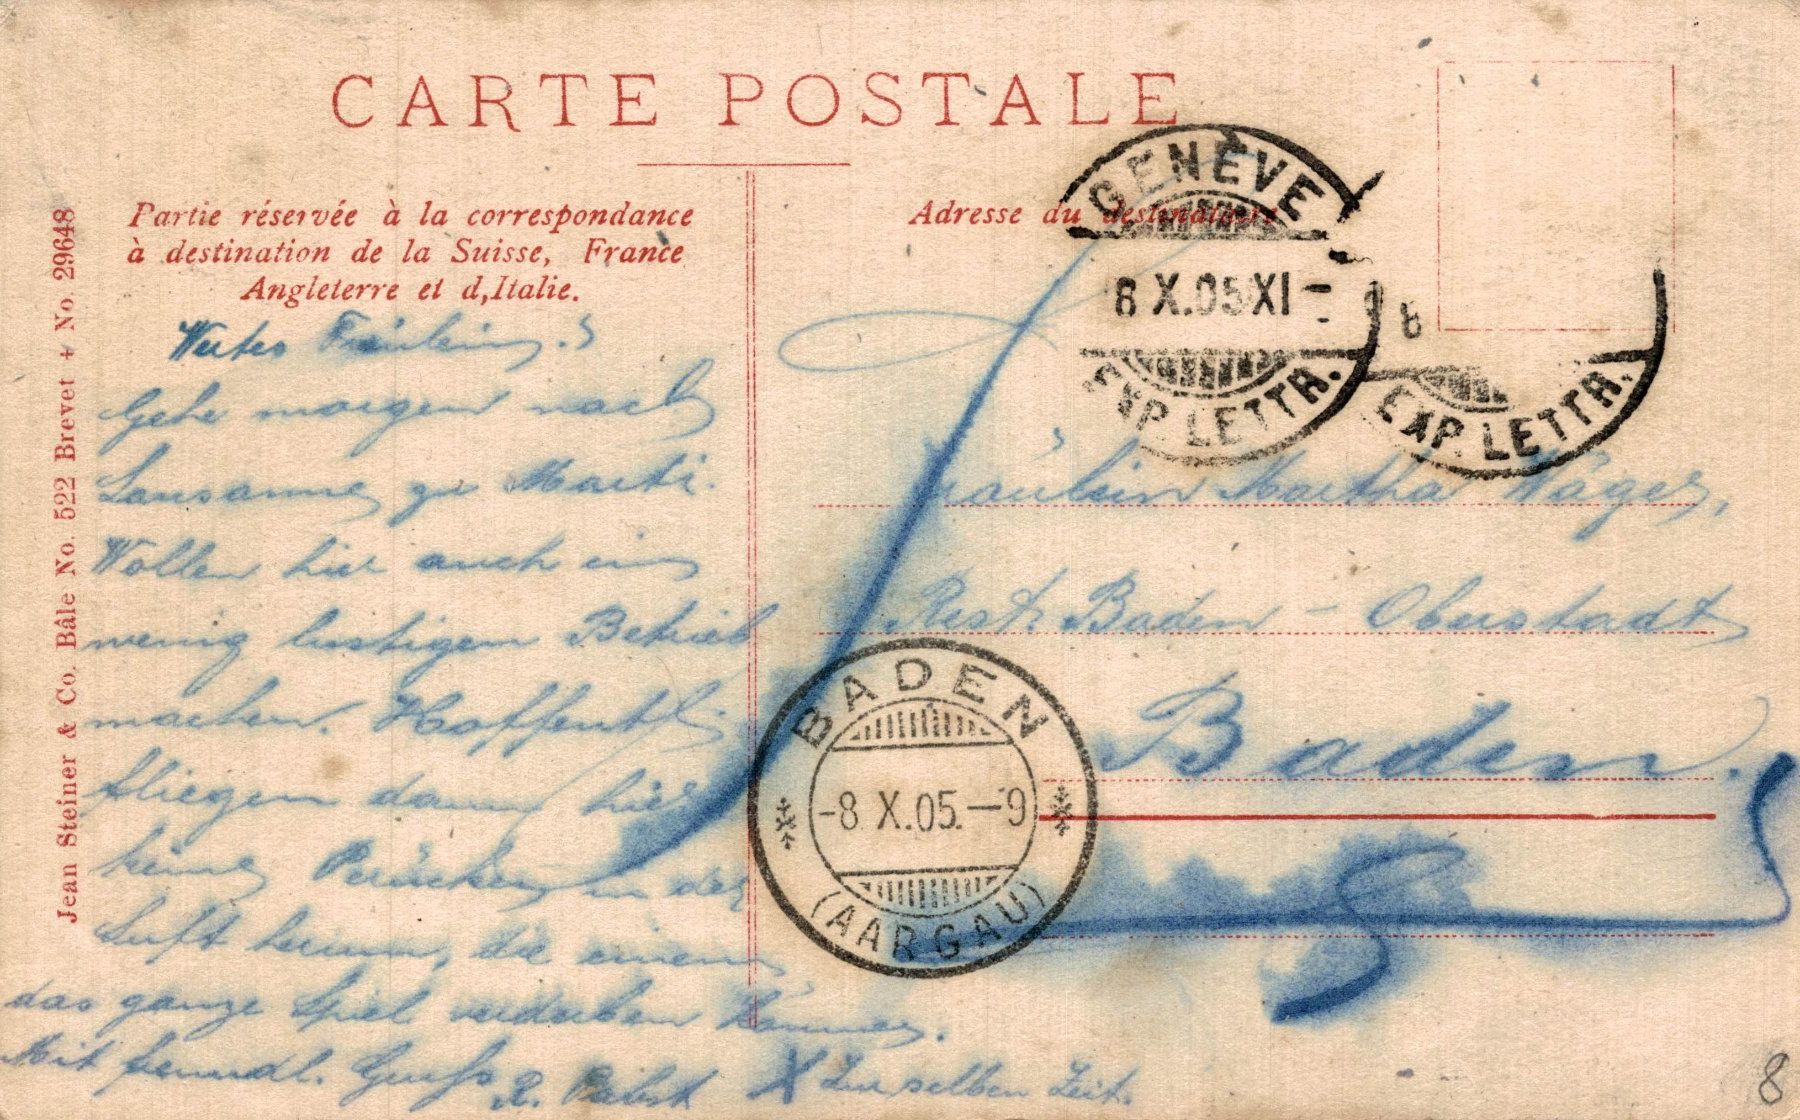 CARTE POSTALE
Partie réservée à la correspondance
à destination de la Suisse, France
Angleterre et d,Italie.
Adresse du destinataire
Jean Steiner & Co. Bâle No. 522 Brevet + No. 29648
GENÈVE
8 X.05 XI-
EXP. LETTR.
8
EXP. LETTR.
Wertes Fräulein.
Gehe morgen nach
Lausanne zu Marti.
Wollen hier auch ein
wenig lustigen Betrieb
machen. Hoffentl.
fliegen dann hier
keine Perücken in der
Luft herum, die einem
das ganze Spiel verderben können.
Mit freundl. Gruss
R. Pabst X Zur selben Zeit.
Fräulein Martha Wäger,
Rest. Baden - Oberstadt
Baden.
BADEN
-8 X.05.-9
(AARGAU)
8